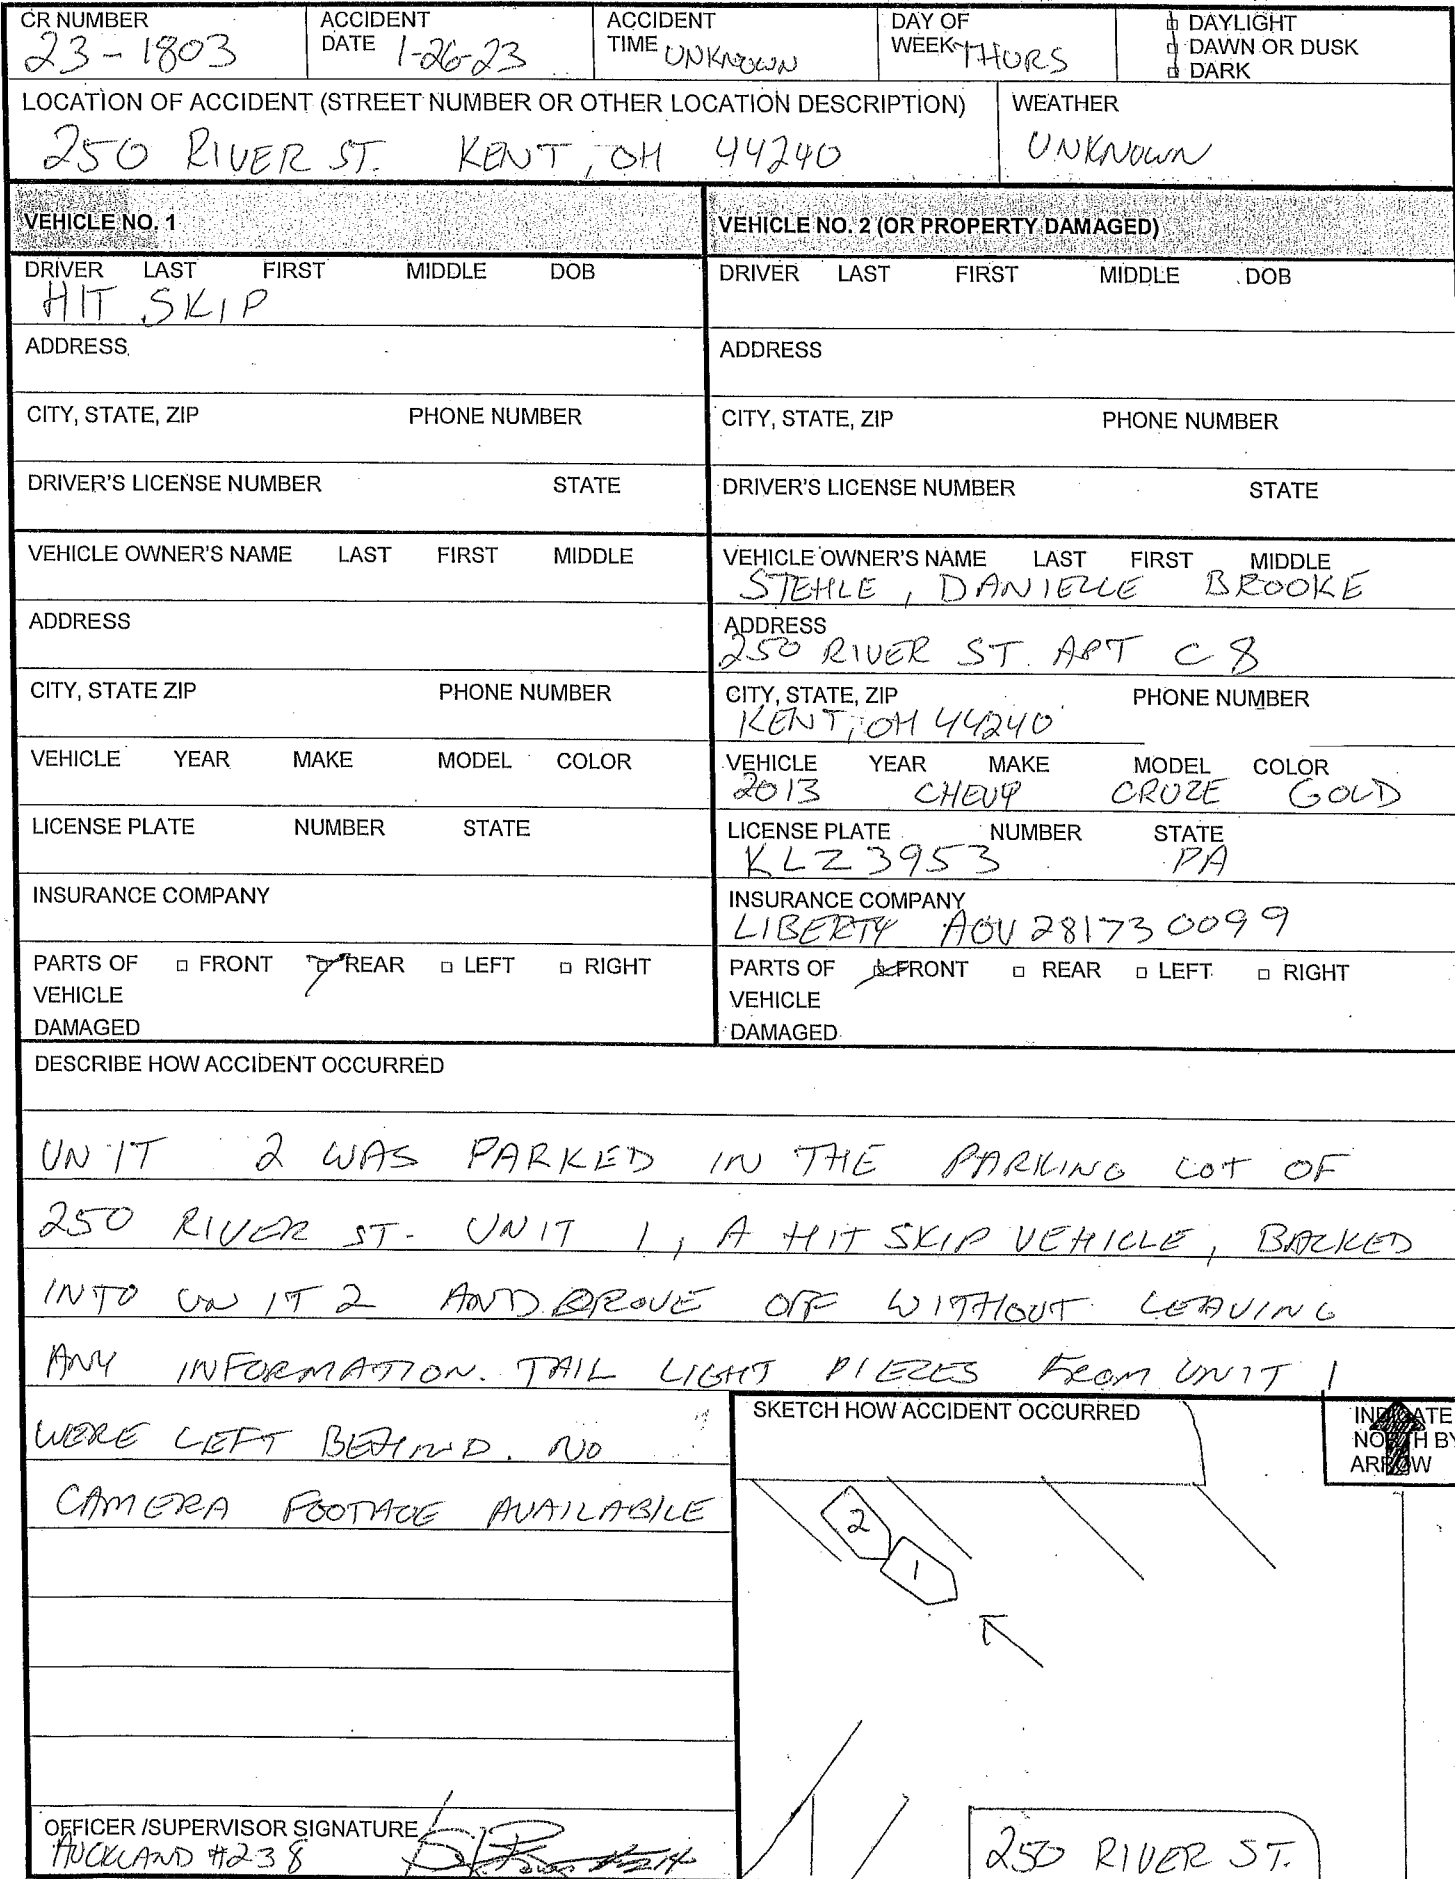 CR NUMBER
23-1803
ACCIDENT
DATE 1-26-23
ACCIDENT
TIME UNKNOWN
DAY OF
WEEK THURS
DAYLIGHT
DAWN OR DUSK
DARK
LOCATION OF ACCIDENT (STREET NUMBER OR OTHER LOCATION DESCRIPTION)
250 RIVER ST. KENT, OH 44240
WEATHER
UNKNOWN
VEHICLE NO. 1
DRIVER LAST FIRST MIDDLE DOB
HIT SKIP
ADDRESS
CITY, STATE, ZIP PHONE NUMBER
DRIVER'S LICENSE NUMBER STATE
VEHICLE OWNER'S NAME LAST FIRST MIDDLE
ADDRESS
CITY, STATE ZIP PHONE NUMBER
VEHICLE YEAR MAKE MODEL COLOR
LICENSE PLATE NUMBER STATE
INSURANCE COMPANY
PARTS OF FRONT REAR LEFT RIGHT
VEHICLE
DAMAGED
VEHICLE NO. 2 (OR PROPERTY DAMAGED)
DRIVER LAST FIRST MIDDLE DOB
ADDRESS
CITY, STATE, ZIP PHONE NUMBER
DRIVER'S LICENSE NUMBER STATE
VEHICLE OWNER'S NAME LAST FIRST MIDDLE
STEHLE, DANIELLE BROOKE
ADDRESS
250 RIVER ST. APT C8
CITY, STATE, ZIP PHONE NUMBER
KENT, OH 44240
VEHICLE YEAR MAKE MODEL COLOR
2013 CHEVY CRUZE GOLD
LICENSE PLATE NUMBER STATE
KLZ3953 PA
INSURANCE COMPANY
LIBERTY AOV 281730099
PARTS OF FRONT REAR LEFT RIGHT
VEHICLE
DAMAGED
DESCRIBE HOW ACCIDENT OCCURRED
UNIT 2 WAS PARKED IN THE PARKING LOT OF
250 RIVER ST. UNIT 1, A HIT SKIP VEHICLE, BACKED
INTO UNIT 2 AND DROVE OFF WITHOUT LEAVING
ANY INFORMATION. TAIL LIGHT PIECES FROM UNIT 1
WERE LEFT BEHIND. NO
CAMERA FOOTAGE AVAILABILE
SKETCH HOW ACCIDENT OCCURRED
INDICATE
NORTH BY
ARROW
2
1
250 RIVER ST.
OFFICER /SUPERVISOR SIGNATURE
AUCKLAND #238